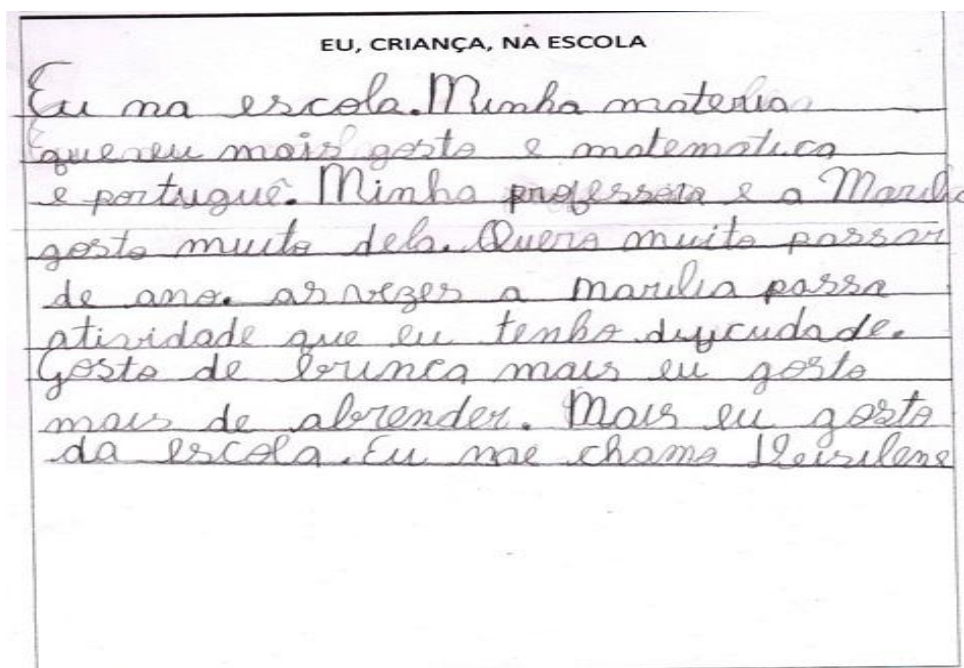 EU, CRIANÇA, NA ESCOLA
Eu na escola. Minha materia
que eu mais gosto e matematica
e portuguê. Minha professora e a Marilia
gosto muito dela. Quero muito passar
de ano. as vezes a marilia passa
atividade que eu tenho
Gosto de brinca mais eu gosto
mais de abrender. Mais eu gosto
da escola. Eu me chamo